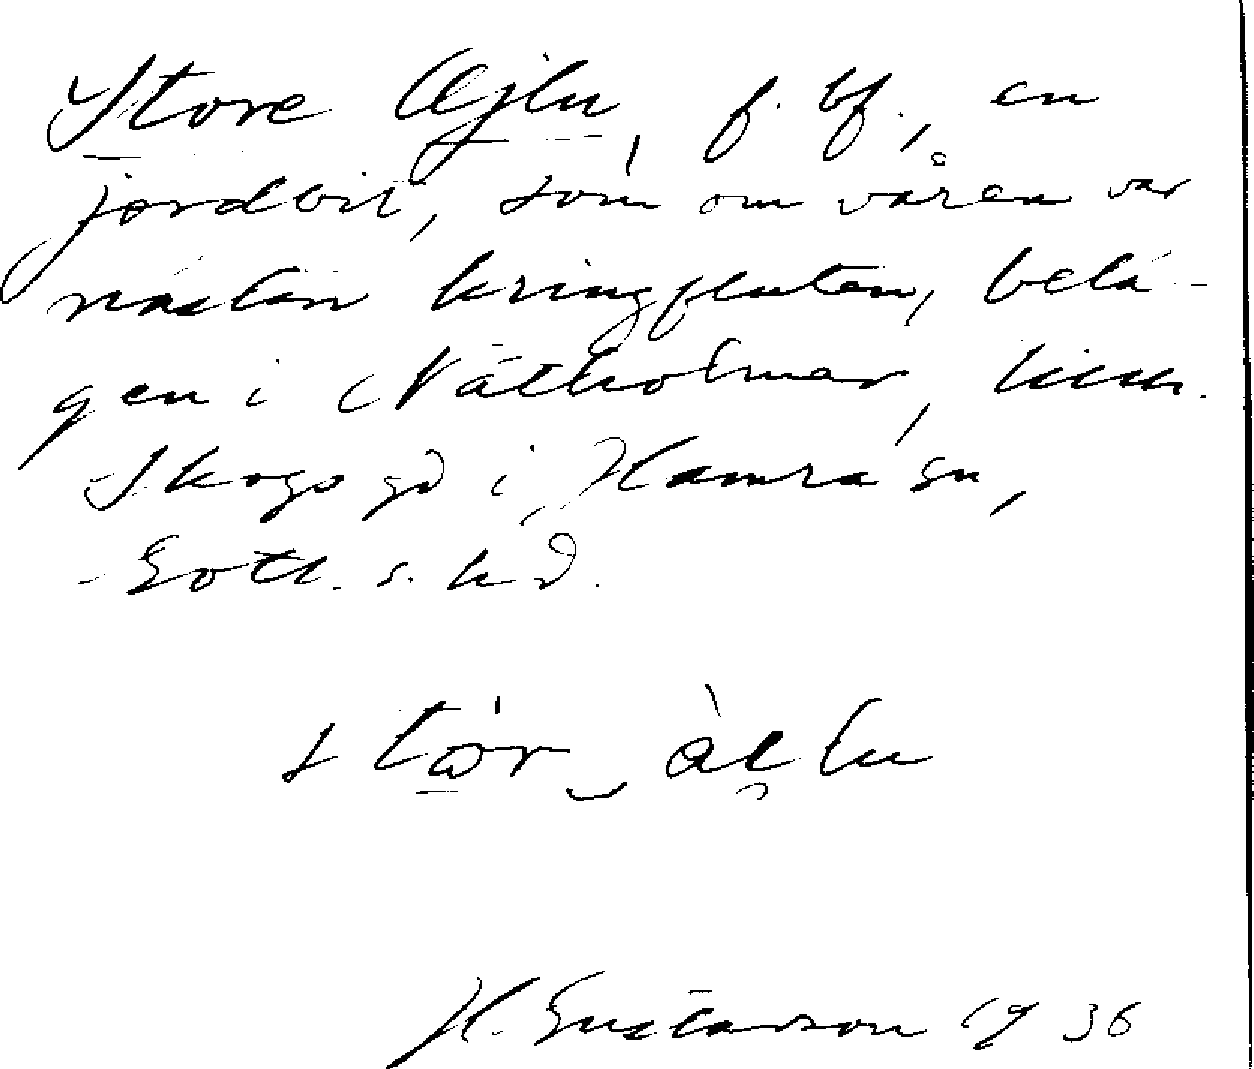 Store Ajlu, f. bf., en
jordbit, som om våren var
nästan kringfluten, belä-
gen i Nätholmar,
Skogs gd i Hamra sn,
Gotl. s. hd.
H. Gustavson 1936